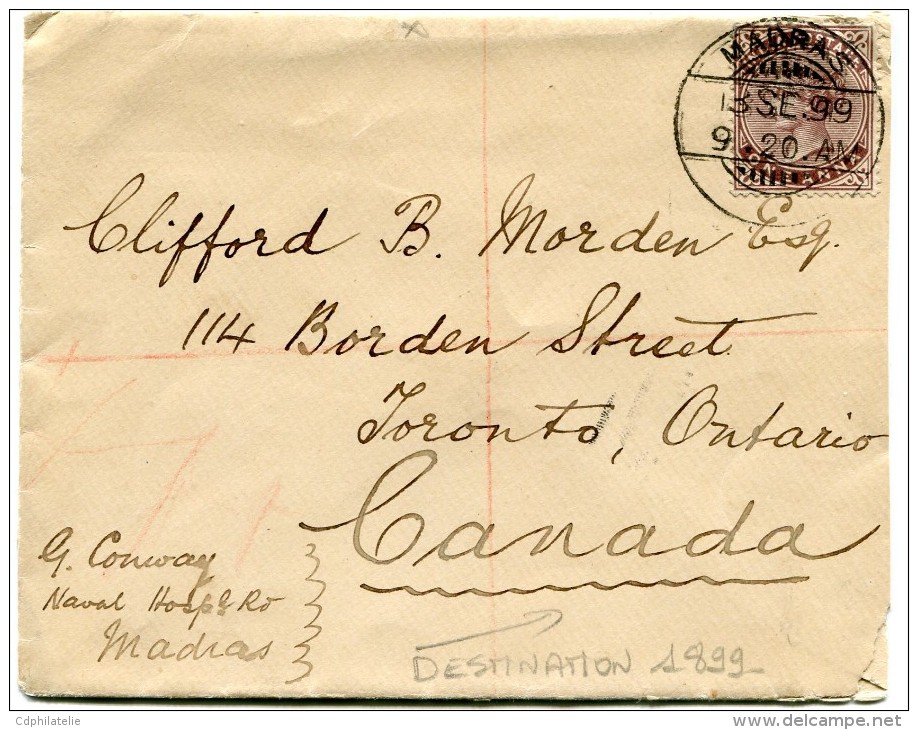 MADRAS
13 SE. 99
9 20. AM
ONE ANNA
Clifford B. Morden Esq.
114 Borden Street
Toronto, Ontario
Canada
G. Conway
Naval Hospl Rd
Madras
DESTINATION 1899
Cdphilatelie
www.delcampe.net